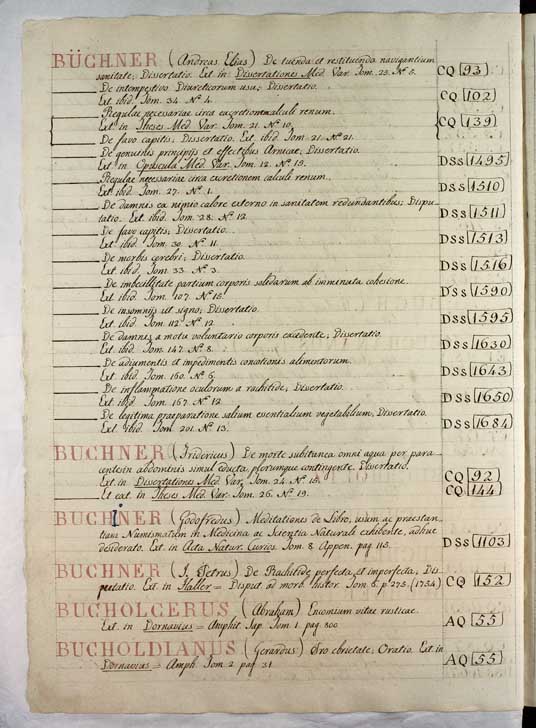 BÜCHNER (Andreas Elias) De tuenda et restituenda navigantium
sanitate; Dissertatio. Ext. in Dissertationes Med. Var. Tom. 23. Nº 5. CQ 93
De intempestivo Diureticorum usu; Dissertatio.
Ext. ibid. Tom. 34. Nº 4. CQ 102
Regulae necessariae circa excretionem calculi renum.
Ext. in Theses Med. Var. Tom. 21. Nº 10. CQ 139
De favo capitis; Dissertatio. Ext. ibid. Tom. 21. Nº 21.
De genuinis principijs et effectibus Arnicae, Dissertatio.
Ext. in Opuscula Med. Var. Tom. 12. Nº 15. DSS 1495
Regulae necessariae circa excretionem calculi renum.
Ext. ibid. Tom. 27. Nº 1. DSS 1510
De damnis ex nimio calore externo in sanitatem redundantibus; Dispu-
tatio. Ext. ibid. Tom. 28. Nº 12. DSS 1511
De favo capitis; Dissertatio.
Ext. ibid. Tom. 30. Nº 11. DSS 1513
De morbis cerebri; Dissertatio.
Ext. ibid. Tom. 33. Nº 3. DSS 1516
De imbecillitate partium corporis solidarum ab imminuta cohesione.
Ext. ibid. Tom. 107. Nº 15. DSS 1590
De insomnijs ut signo; Dissertatio.
Ext. ibid. Tom. 112. Nº 12. DSS 1595
De damnis a motu voluntario corporis excedente; Dissertatio.
Ext. ibid. Tom. 147. Nº 8. DSS 1630
De adiumentis et impedimentis concotionis alimentorum.
Ext. ibid. Tom. 160. Nº 6. DSS 1643
De inflammatione oculorum a rachitide; Dissertatio.
Ext. ibid. Tom. 167. Nº 12. DSS 1650
De legitima praeparatione salium essentialium vegetabilium, Dissertatio.
Ext. ibid. Tom. 201. Nº 13. DSS 1684
BUCHNER (Fridericus) De morte subitanea omni aqua per para-
centesin abdominis simul educta, plerumque contingente. Dissertatio.
Ext. in Dissertationes Med. Var. Tom. 24. Nº 15. CQ 92
Et ext. in Theses Med. Var. Tom. 26. Nº 19. CQ 144
BUCHNER (Godofredus) Meditationes de Libro, usum ac praestan-
tiam Numismatum in Medicina ac Scientia Naturali exhibente, adhuc
desiderato. Ext. in Acta Natur. Curios. Tom. 8. Appen. pag. 113. DSS 1103
BUCHNER (J. Petrus) De Rachitide, perfecta, et imperfecta; Dis-
putatio. Ext. in Haller = Disput. ad morb. histor. Tom. 6. p. 275. (1754) CQ 152
BUCHOLCERUS (Abraham) Encomium vitae rusticae.
Ext. in Dornavius = Amphit. Sap. Tom. 1. pag. 800 AQ 55
BUCHOLDIANUS (Gerardus) Pro ebrietate; Oratio. Ext. in
Dornavius = Amph. Tom. 2. pag. 31. AQ 55